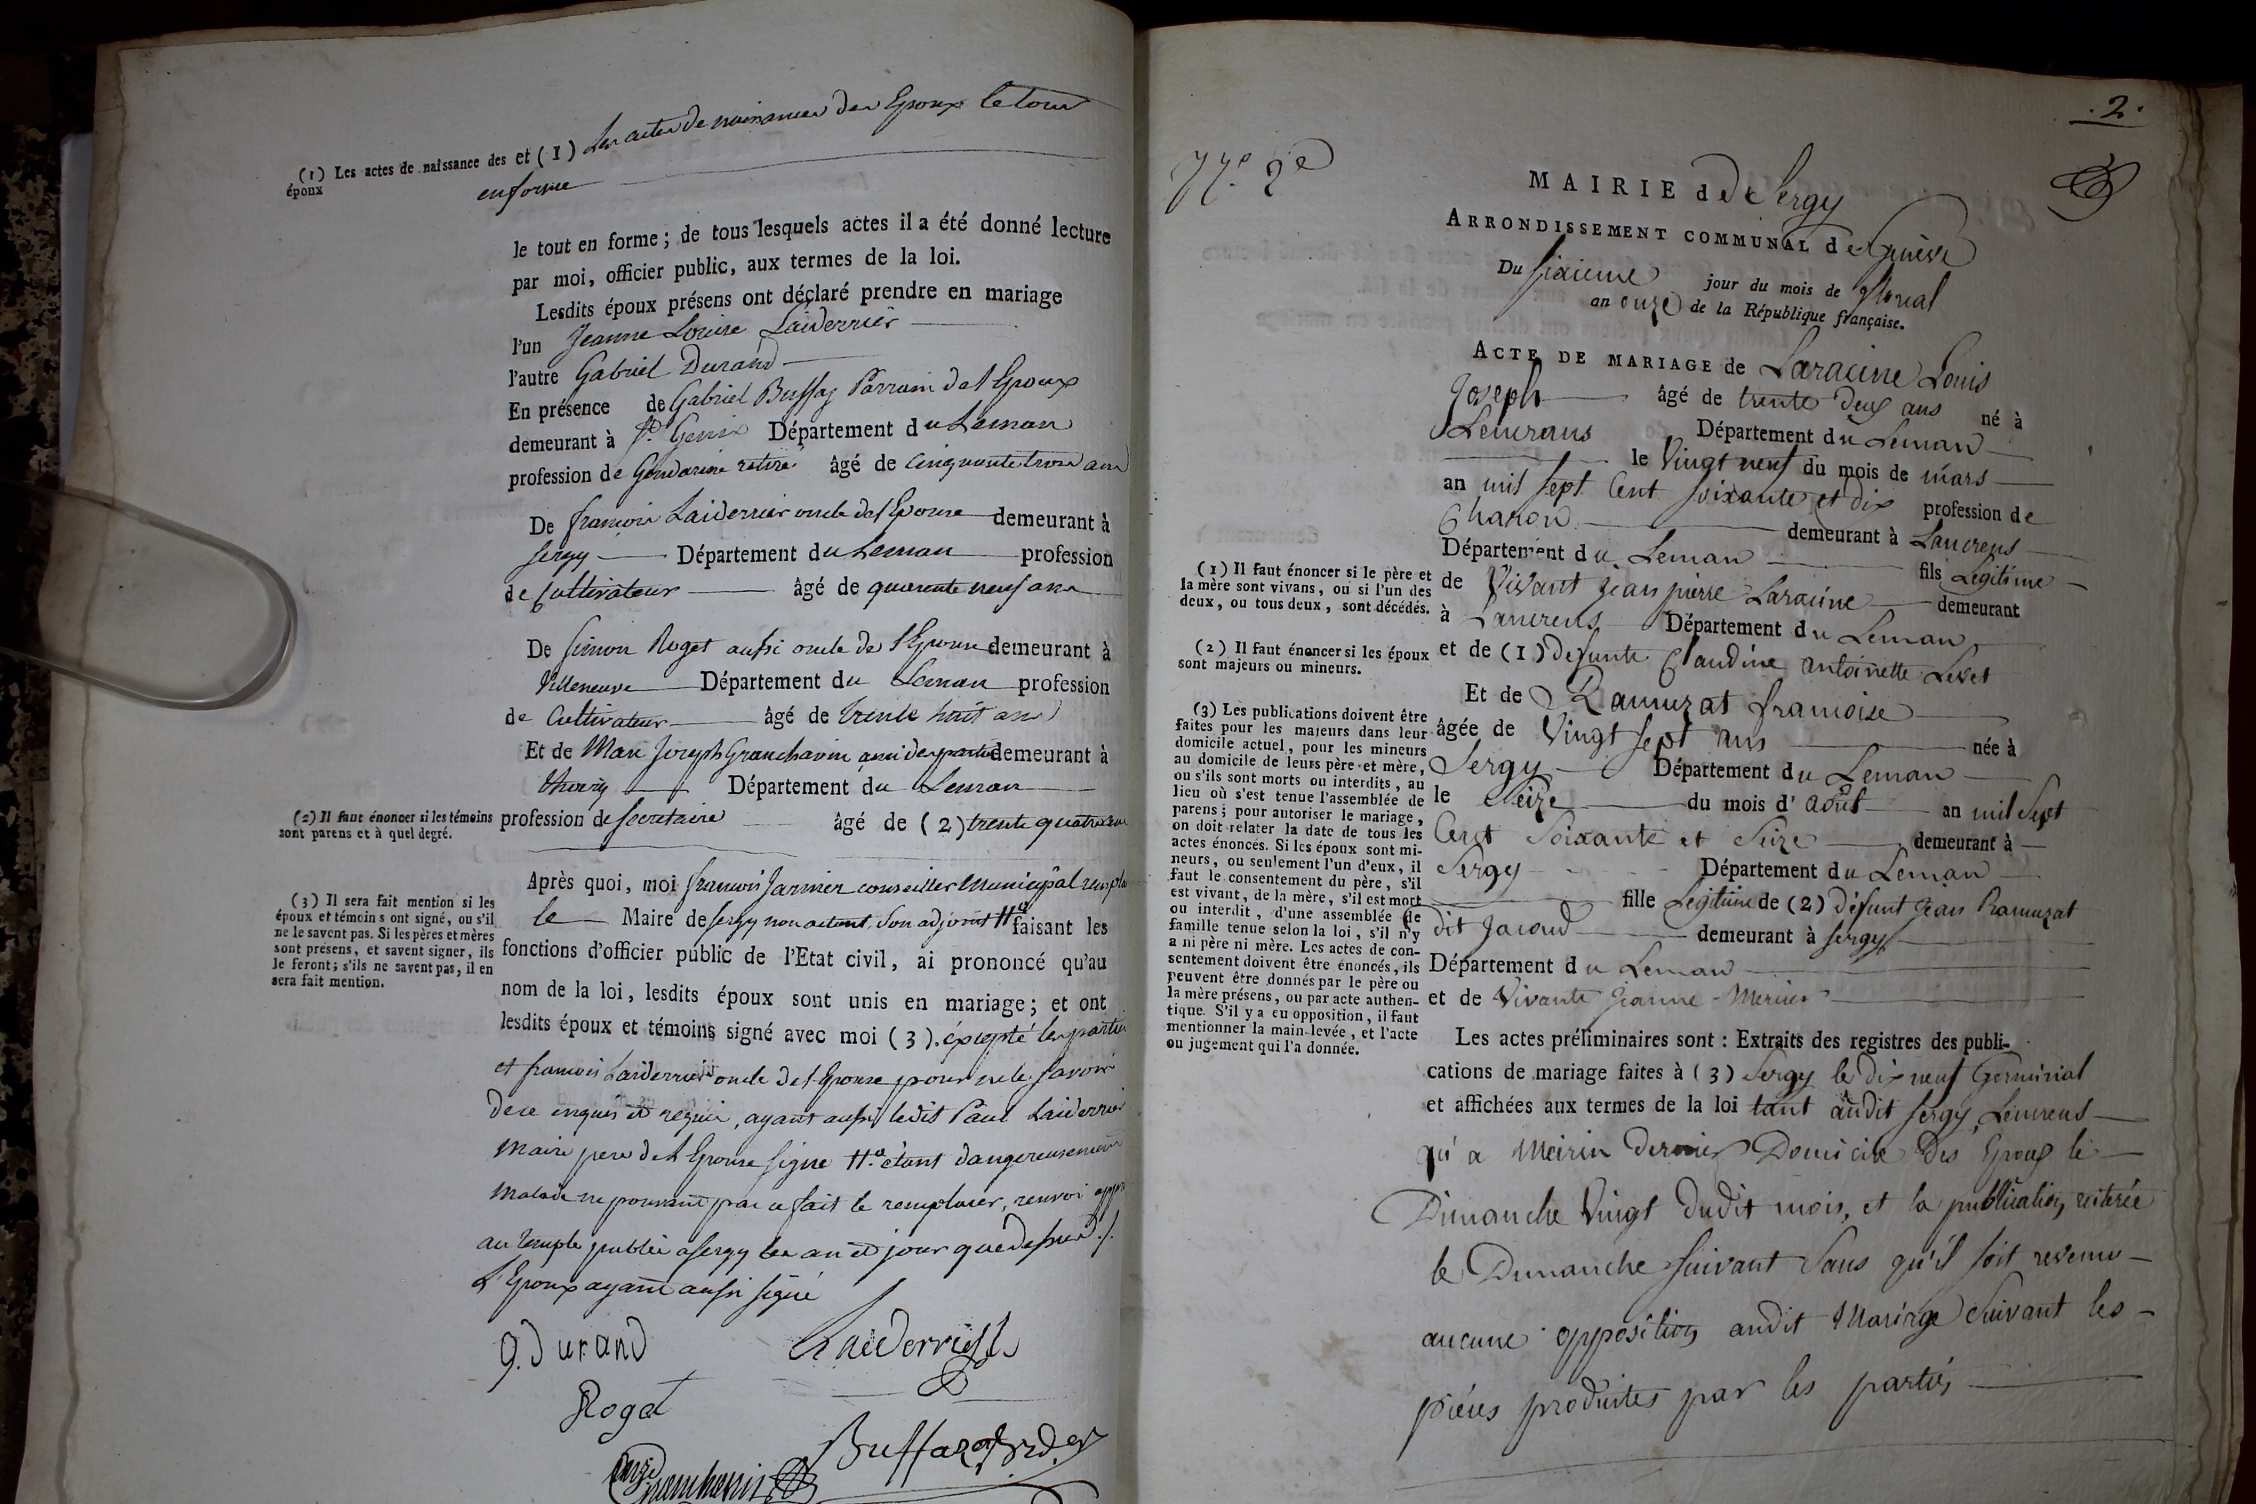 (1) Les actes de naissance des époux
et (1) Les actes de naissances des Epoux le tout
en forme
le tout en forme; de tous lesquels actes il a été donné lecture
par moi, officier public, aux termes de la loi.
Lesdits époux présens ont déclaré prendre en mariage
l'un Jeanne Louise Laiderrier
l'autre Gabriel Durand
En présence de Gabriel Buffaz Parrain de l'Epoux
demeurant à St. Genix Département du Leman
profession de Gendarme retiré âgé de cinquante trois ans
De françois Laiderrier oncle de l'Epouse demeurant à
Sergy Département du Leman profession
de Cultivateur âgé de quarente neuf ans
De Simon Roget aussi oncle de l'Epouse demeurant à
Villeneuve Département du Leman profession
de Cultivateur âgé de trente huit ans
Et de Marc Joseph Granchavin ami des parties demeurant à
Thoiry Département du Leman
(2) Il faut énoncer si les témoins
sont parens et à quel degré.
profession de Secretaire âgé de (2) trente quatre ans
Après quoi, moi francois Jarnier conseiller Municipal
le Maire de Sergy son adjoint faisant les
(3) Il sera fait mention si les
époux et témoins ont signé, ou s'il
ne le savent pas. Si les pères et mères
sont présens, et savent signer, ils
le feront; s'ils ne savent pas, il en
sera fait mention.
fonctions d'officier public de l'Etat civil, ai prononcé qu'au
nom de la loi, lesdits époux sont unis en mariage; et ont
lesdits époux et témoins signé avec moi (3). éxcepté les parties
et francois Laiderrier oncle de l'Epouse pour ne le savoir
de ce enquis et requis, ayant aussi ledit Paul Laiderrier
Maire pere de l'Epouse signé étant dangereusement
Malade ne pouvant par ce fait le remplacer, renvoi
au temple publié a Sergy les an et jour que dessus
L'Epoux ayant aussi signé
G. Durand
Laiderrier
Roget
Buffaz
Granchavin
.2.
No. 2e
MAIRIE de Sergy
ARRONDISSEMENT COMMUNAL de Genève
Du Sixieme jour du mois de floreal
an onze de la République française.
ACTE DE MARIAGE de Laracine Louis
Joseph âgé de trente deux ans né à
Lencrans Département du Leman
le Vingt neuf du mois de mars
an mil sept Cent soixante et dix profession de
Charon demeurant à Lancrens
Département du Leman fils Legitime
(1) Il faut énoncer si le père et
la mère sont vivans, ou si l'un des
deux, ou tous deux, sont décédés.
de Vivant Jean pierre Laracine demeurant
à Lancrens Département du Leman
(2) Il faut énoncer si les époux
sont majeurs ou mineurs.
et de (1) defunte Claudine antoinette Levet
Et de Ramuzat francoise
âgée de Vingt sept ans née à
Sergy Département du Leman
le Seize du mois d'Août an mil sept
Cent Soixante et Seize demeurant à
Sergy Département du Leman
fille Legitime de (2) défunt Jean Ramuzat
dit Jacoud demeurant à Sergy
Département du Leman
et de Vivante Jeanne Mercier
(3) Les publications doivent être
faites pour les majeurs dans leur
domicile actuel, pour les mineurs
au domicile de leurs père et mère,
ou s'ils sont morts ou interdits, au
lieu où s'est tenue l'assemblée de
parens; pour autoriser le mariage,
on doit relater la date de tous les
actes énoncés. Si les époux sont mi-
neurs, ou seulement l'un d'eux, il
faut le consentement du père, s'il
est vivant, de la mère, s'il est mort
ou interdit, d'une assemblée de
famille tenue selon la loi, s'il n'y
a ni père ni mère. Les actes de con-
sentement doivent être énoncés, ils
peuvent être donnés par le père ou
la mère présens, ou par acte authen-
tique. S'il y a eu opposition, il faut
mentionner la main-levée, et l'acte
ou jugement qui l'a donnée.
Les actes préliminaires sont: Extraits des registres des publi-
cations de mariage faites à (3) Sergy le dix neuf Germinal
et affichées aux termes de la loi tant audit Sergy, Lencrens
qu'a Meirin dernier Domicile des Epoux le
Dimanche Vingt dudit mois, et la publication reiterée
le Dimanche suivant sans qu'il soit revenu
aucune opposition audit Mariage suivant les
pièces produites par les parties